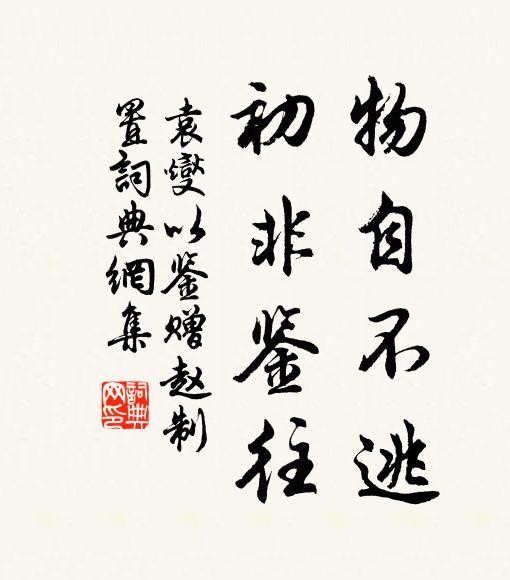 物自不逃
初非鉴往
袁燮以鉴赠赵制
置詞典網集
詞典网印